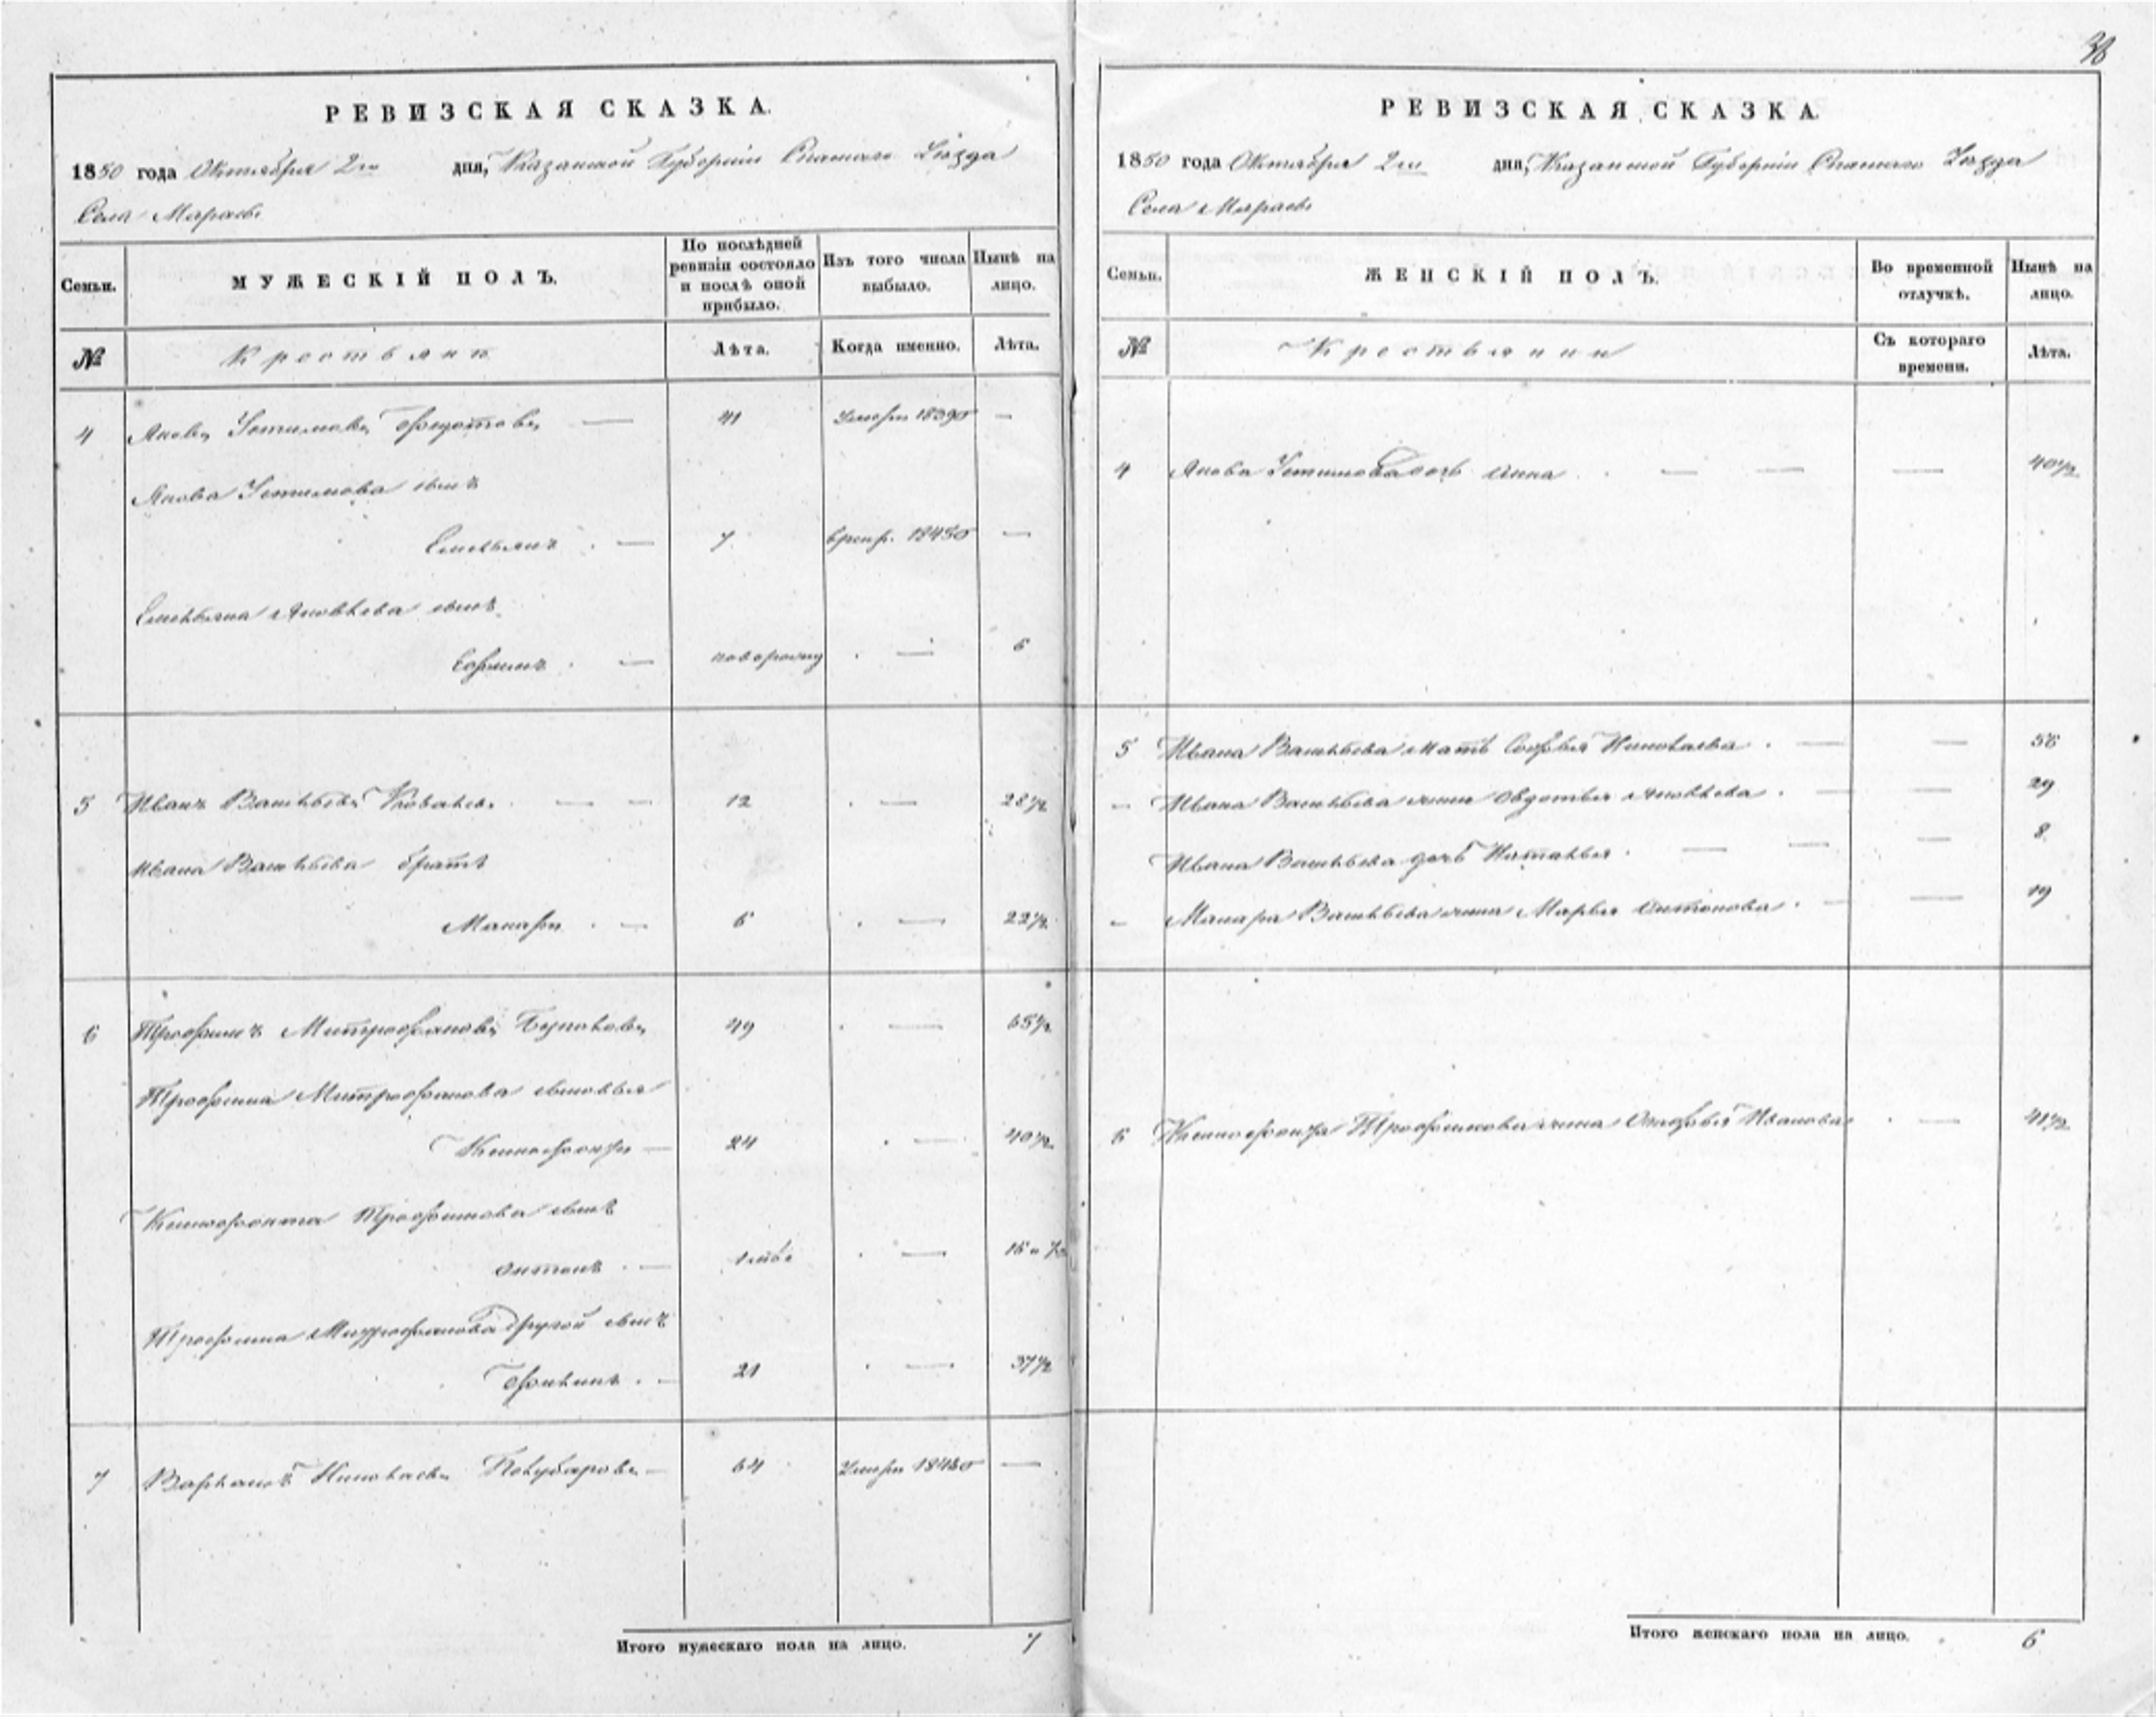 38
РЕВИЗСКАЯ СКАЗКА.
1850 года Октября 2го дня, Казанской Губерніи Спаскаго Уѣзда
Села Марасы
Семьи.
МУЖЕСКІЙ ПОЛЪ.
По послѣдней ревизіи состояло и послѣ оной прибыло.
Изъ того числа выбыло.
Нынѣ на лицо.
№
Крестьянъ
Лѣта.
Когда именно.
Лѣта.
4 Яковъ Устимовъ 41 Умеръ 1839го —
Якова Устимова сынъ
Емельянъ — 7 1845го —
Емельяна Яковлева сынъ
Ефимъ — новорожд — 6
5 Иванъ Васильевъ Ковалевъ — 12 — 28½
Ивана Васильева братъ
Макаръ — 6 — 22½
6 Трофимъ Митрофановъ Булаковъ 49 — 65½
Трофима Митрофанова сыновья
Ксенофонтъ — 24 — 40½
Ксенофонта Трофимова сынъ
Антонъ — —
Трофима Митрофанова другой сынъ
— 21 — 37½
7 Николаевъ — 64 Умеръ —
Итого мужескаго пола на лицо. 7
РЕВИЗСКАЯ СКАЗКА.
1850 года Октября 2го дня, Казанской Губерніи Спаскаго Уѣзда
Села Марасы
Семьи.
ЖЕНСКІЙ ПОЛЪ.
Во временной отлучкѣ.
Нынѣ на лицо.
№
Крестьянки
Съ котораго времени.
Лѣта.
4 Якова Устимова дочь Анна — — — 40½
5 Ивана Васильева мать Софья Николаева — — 56
— Ивана Васильева жена Авдотья Яковлева — — 29
Ивана Васильева дочь Наталья — — — 8
— Макара Васильева жена Марья Антонова — — 19
6 Ксенофонта Трофимова жена Ивановна — 41½
Итого женскаго пола на лицо. 6